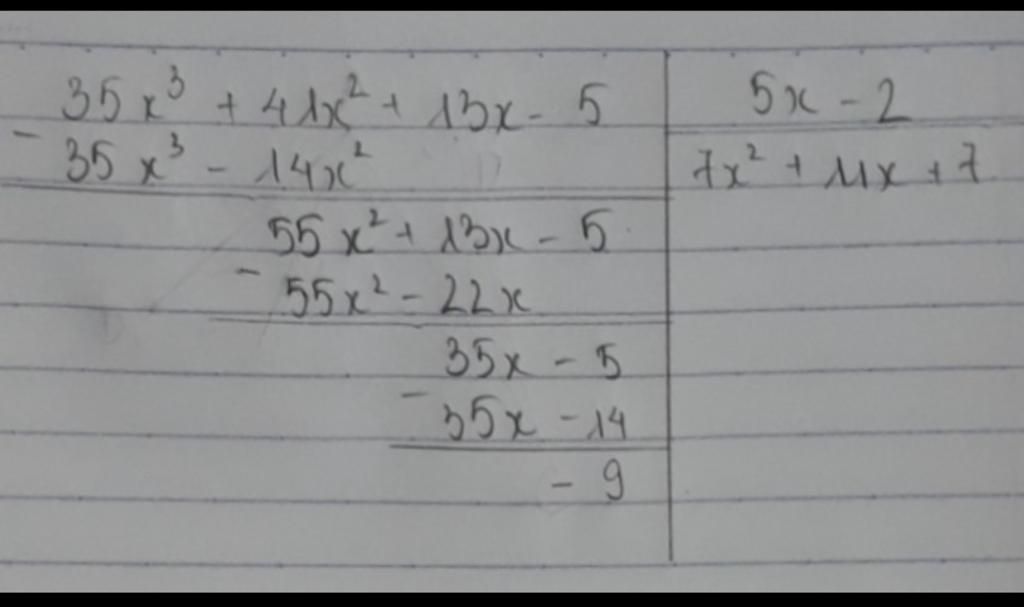 35x³ + 41x² + 13x - 5 | 5x - 2
- 35x³ - 14x² | 7x² + 11x + 7
55x² + 13x - 5
- 55x² - 22x
35x - 5
- 35x - 14
- 9